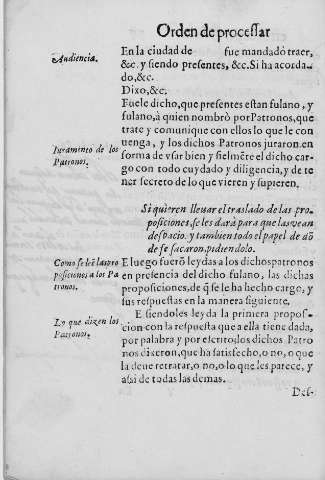 Orden de processar
Audiencia.
En la ciudad de fue mandadò traer,
&c. y siendo presentes, &c. Si ha acorda
do, &c.
Dixo, &c.
Fuele dicho, que presentes estan fulano, y
fulano, à quien nombrò por Patronos, que
trate y comunique con ellos lo que le con
uenga, y los dichos Patronos juraron en
Iuramento de los
Patronos.
forma de vsar bien y fielmẽte el dicho car
go con todo cuydado y diligencia, y de te
ner secreto de lo que vieren y supieren.
Si quieren lleuar el traslado de las pro
posiciones, se les darà para que las vean
despacio. y tambien todo el papel de dõ
de se sacaron, pidiendolo.
Como se lee las pro
posiciones a los Pa
tronos.
E luego fuerõ leydas a los dichos patronos
en presencia del dicho fulano, las dichas
proposiciones, de q̃ se le ha hecho cargo, y
sus respuestas en la manera siguiente.
Lo que dizen los
Patronos.
E siendoles leyda la primera proposi
cion con la respuesta que a ella tiene dada,
por palabra y por escrito, los dichos Patro
nos dixeron, que ha satisfecho, o no, o que
la deue retratar, o no, o lo que les parece, y
assi de todas las demas.
Des-